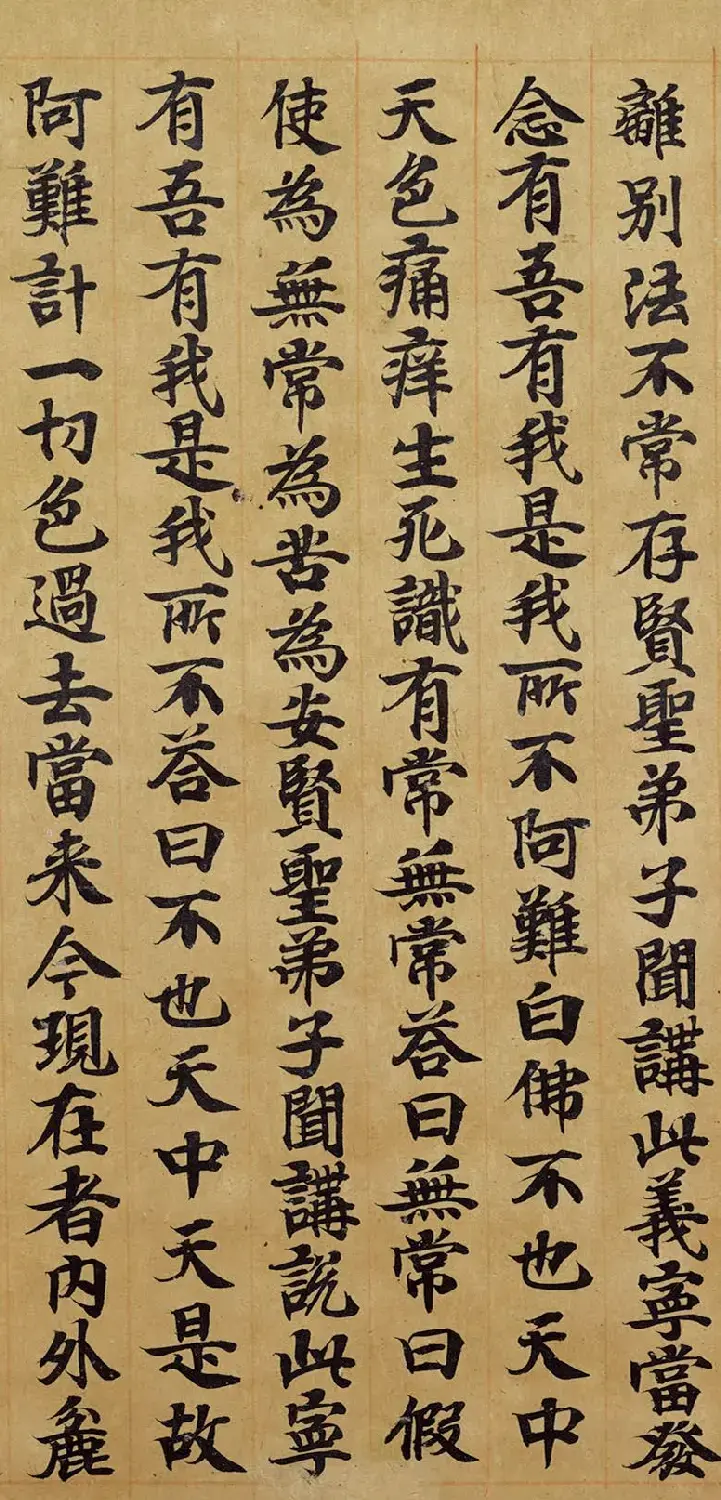 離別法不常存賢聖弟子聞講此義寧當發
念有吾有我是我所不阿難白佛不也天中
天色痛痒生死識有常無常答曰無常曰假
使為無常為苦為安賢聖弟子聞講說此寧
有吾有我是我所不答曰不也天中天是故
阿難計一切色過去當来今現在者内外麁